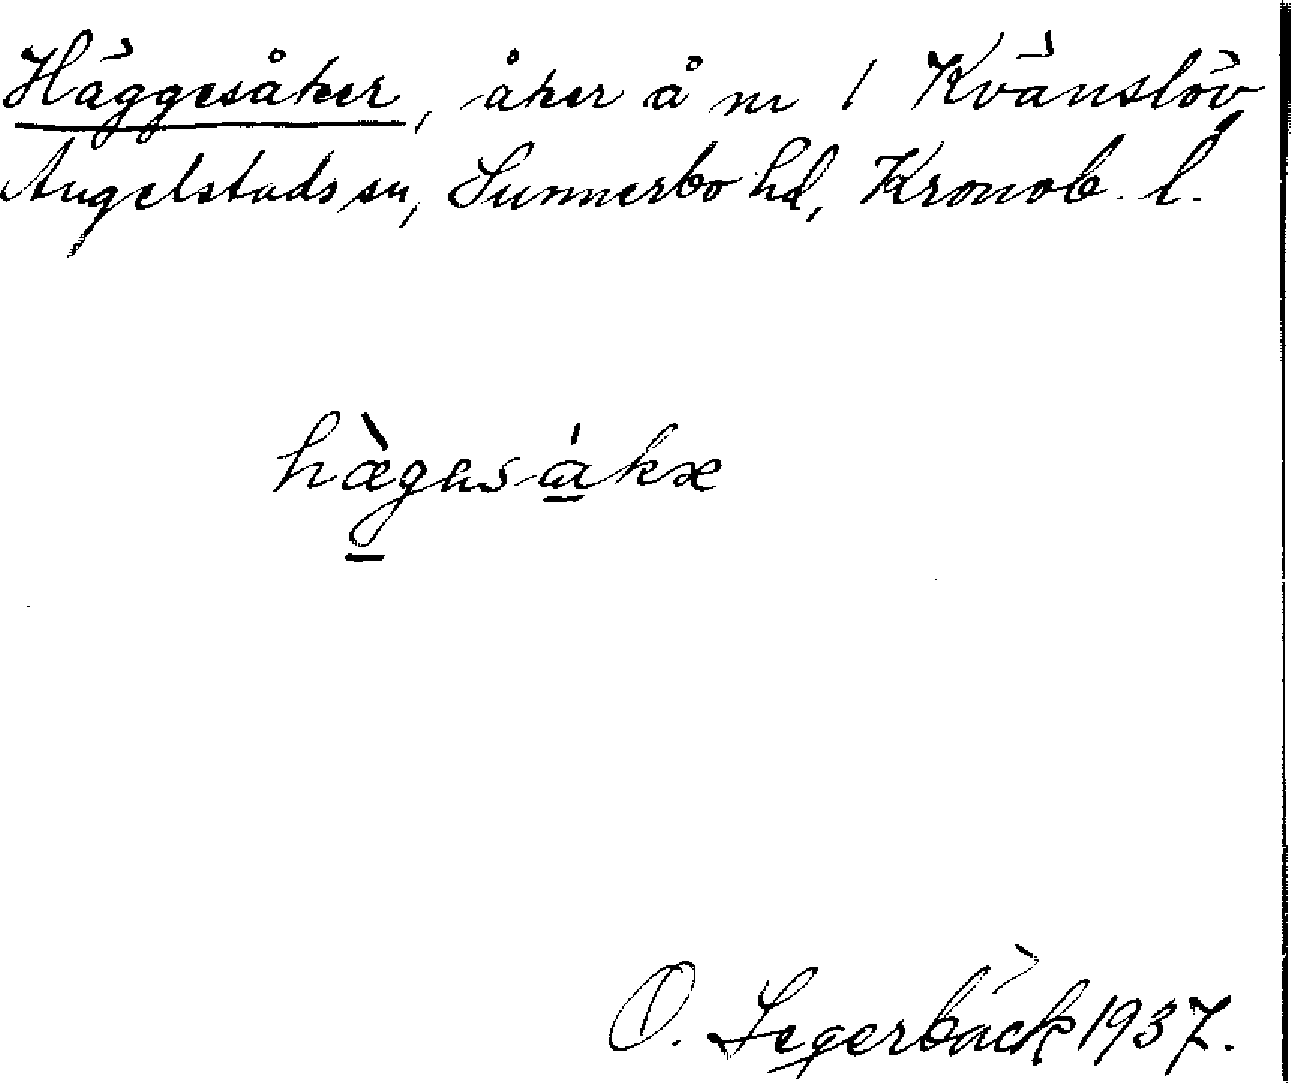 Häggesåker, åker å nr 1 Kvänslöv
Angelstads sn, Sunnerbo hd, Kronob. l.
O. Segerbäck 1937.